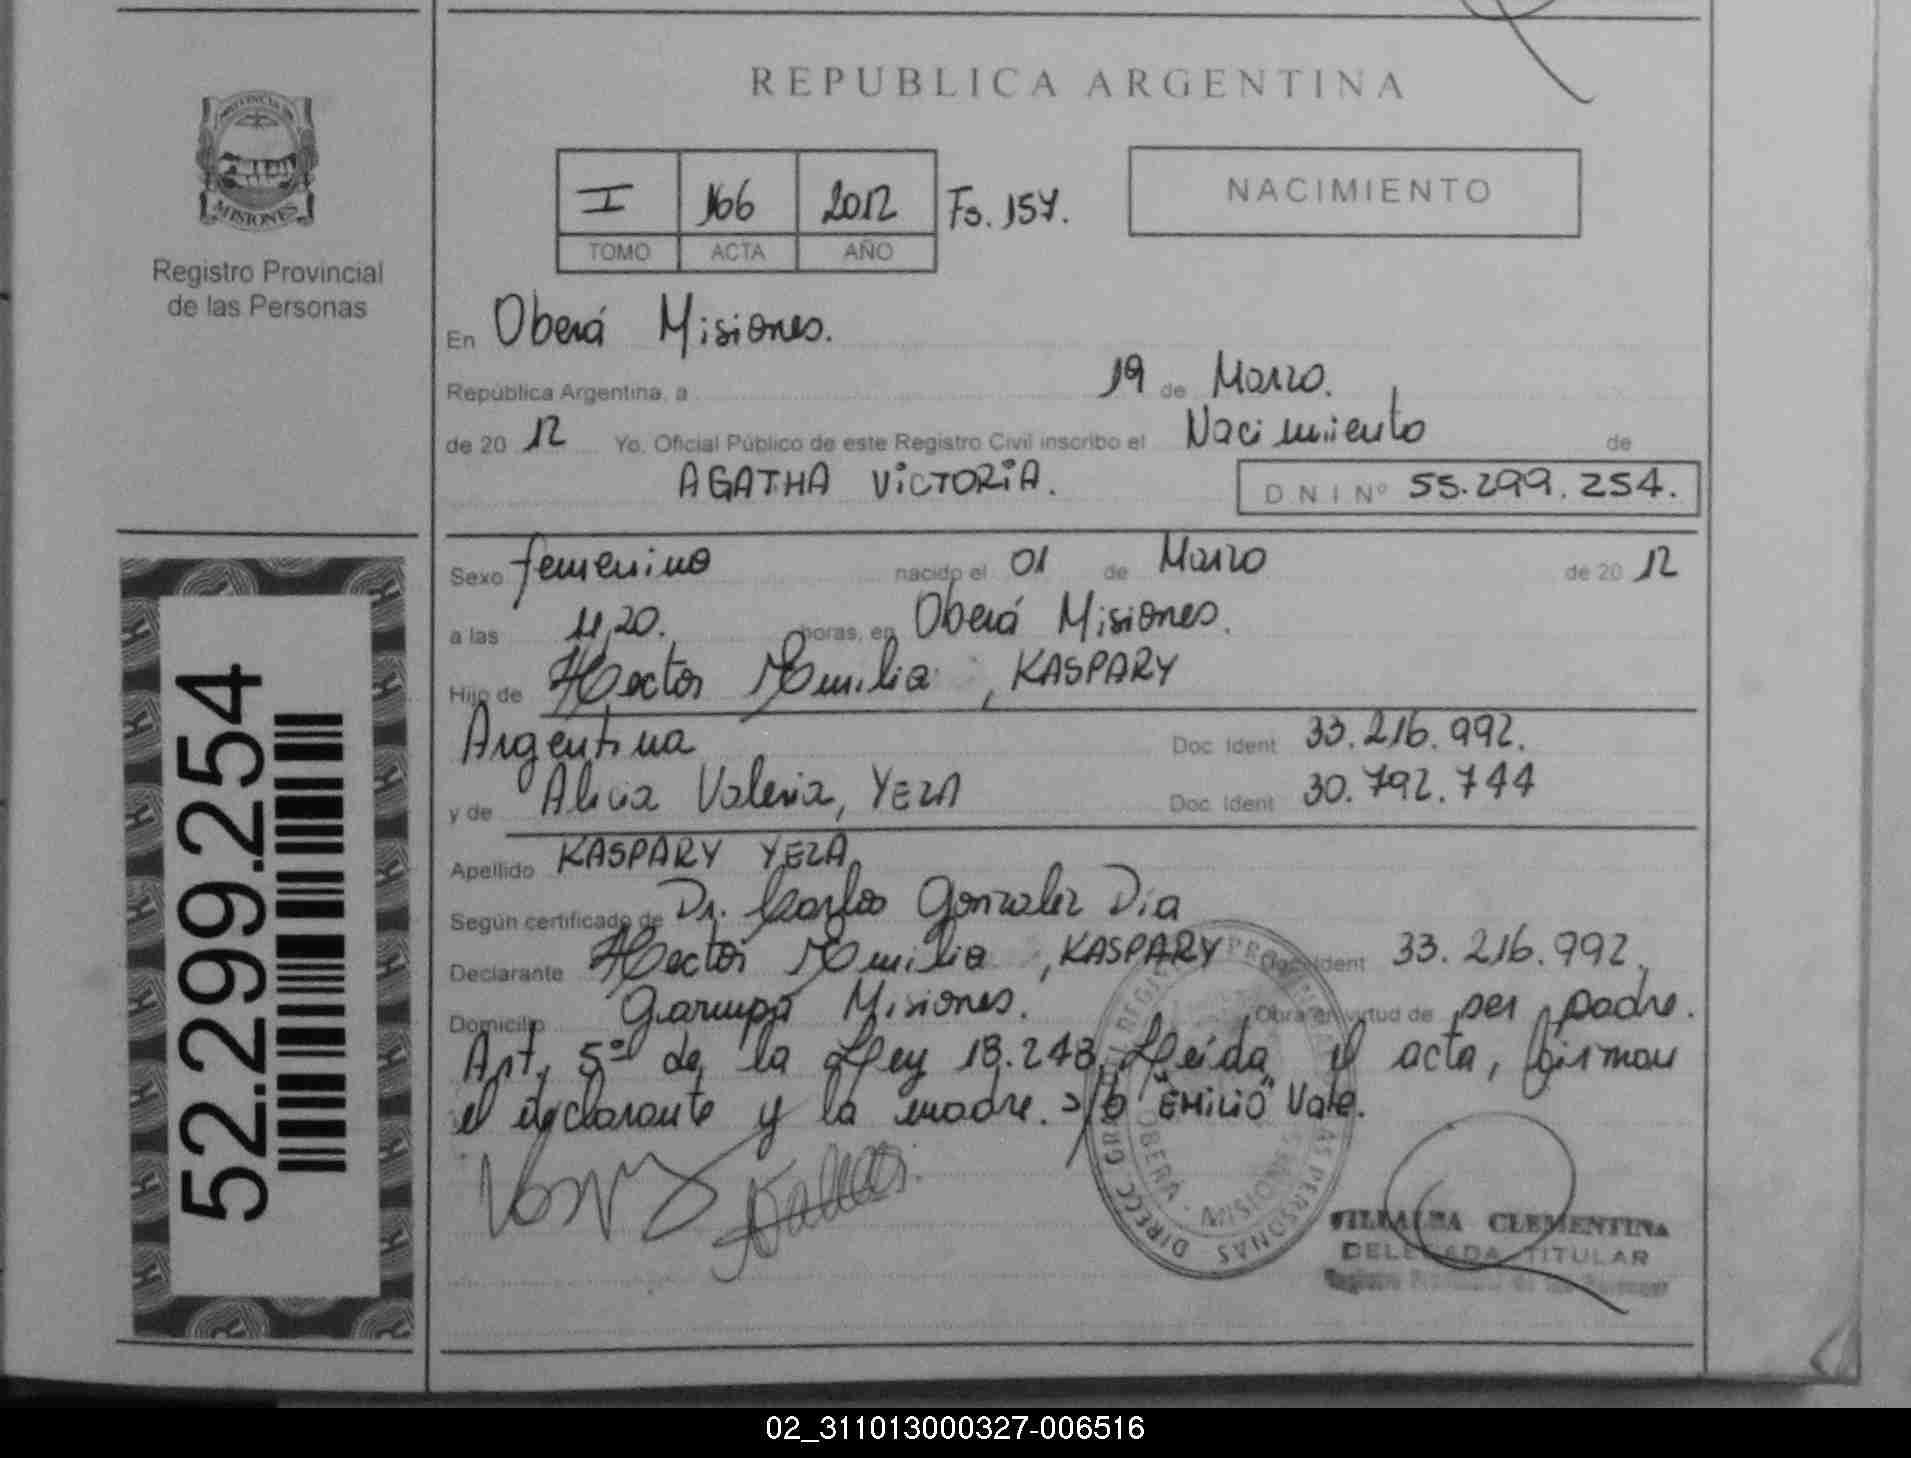 REPUBLICA ARGENTINA
PROVINCIA DE
MISIONES
Registro Provincial
de las Personas
I 166 2012 Fs. 157.
TOMO ACTA AÑO
NACIMIENTO
En Oberá Misiones.
República Argentina, a 19 de Marzo.
de 20 12 Yo, Oficial Público de este Registro Civil inscribo el Nacimiento de
AGATHA VICTORIA. DNI Nº 55.299.254.
Sexo femenino nacido el 01 de Marzo de 20 12
a las 11,20. horas, en Oberá Misiones.
Hijo de Hector Emilia , KASPARY
Argentina Doc. Ident 33.216.992.
y de Alicia Valeria, YEZA Doc. Ident 30.792.744
Apellido KASPARY YEZA
Según certificado de Dr. Carlos Gonzalez Dia
Declarante Hector Emilia , KASPARY Doc. Ident 33.216.992.
Domicilio Garupá Misiones. Obra en virtud de ser padre.
Art. 5º de la Ley 18.248, Leída el acta, firman
el declarante y la madre. s/b "EMILIO" Vale.
OBERÁ - MISIONES
VILLALBA CLEMENTINA
DELEGADA TITULAR
Registro Provincial de las Personas
52.299.254
02_311013000327-006516